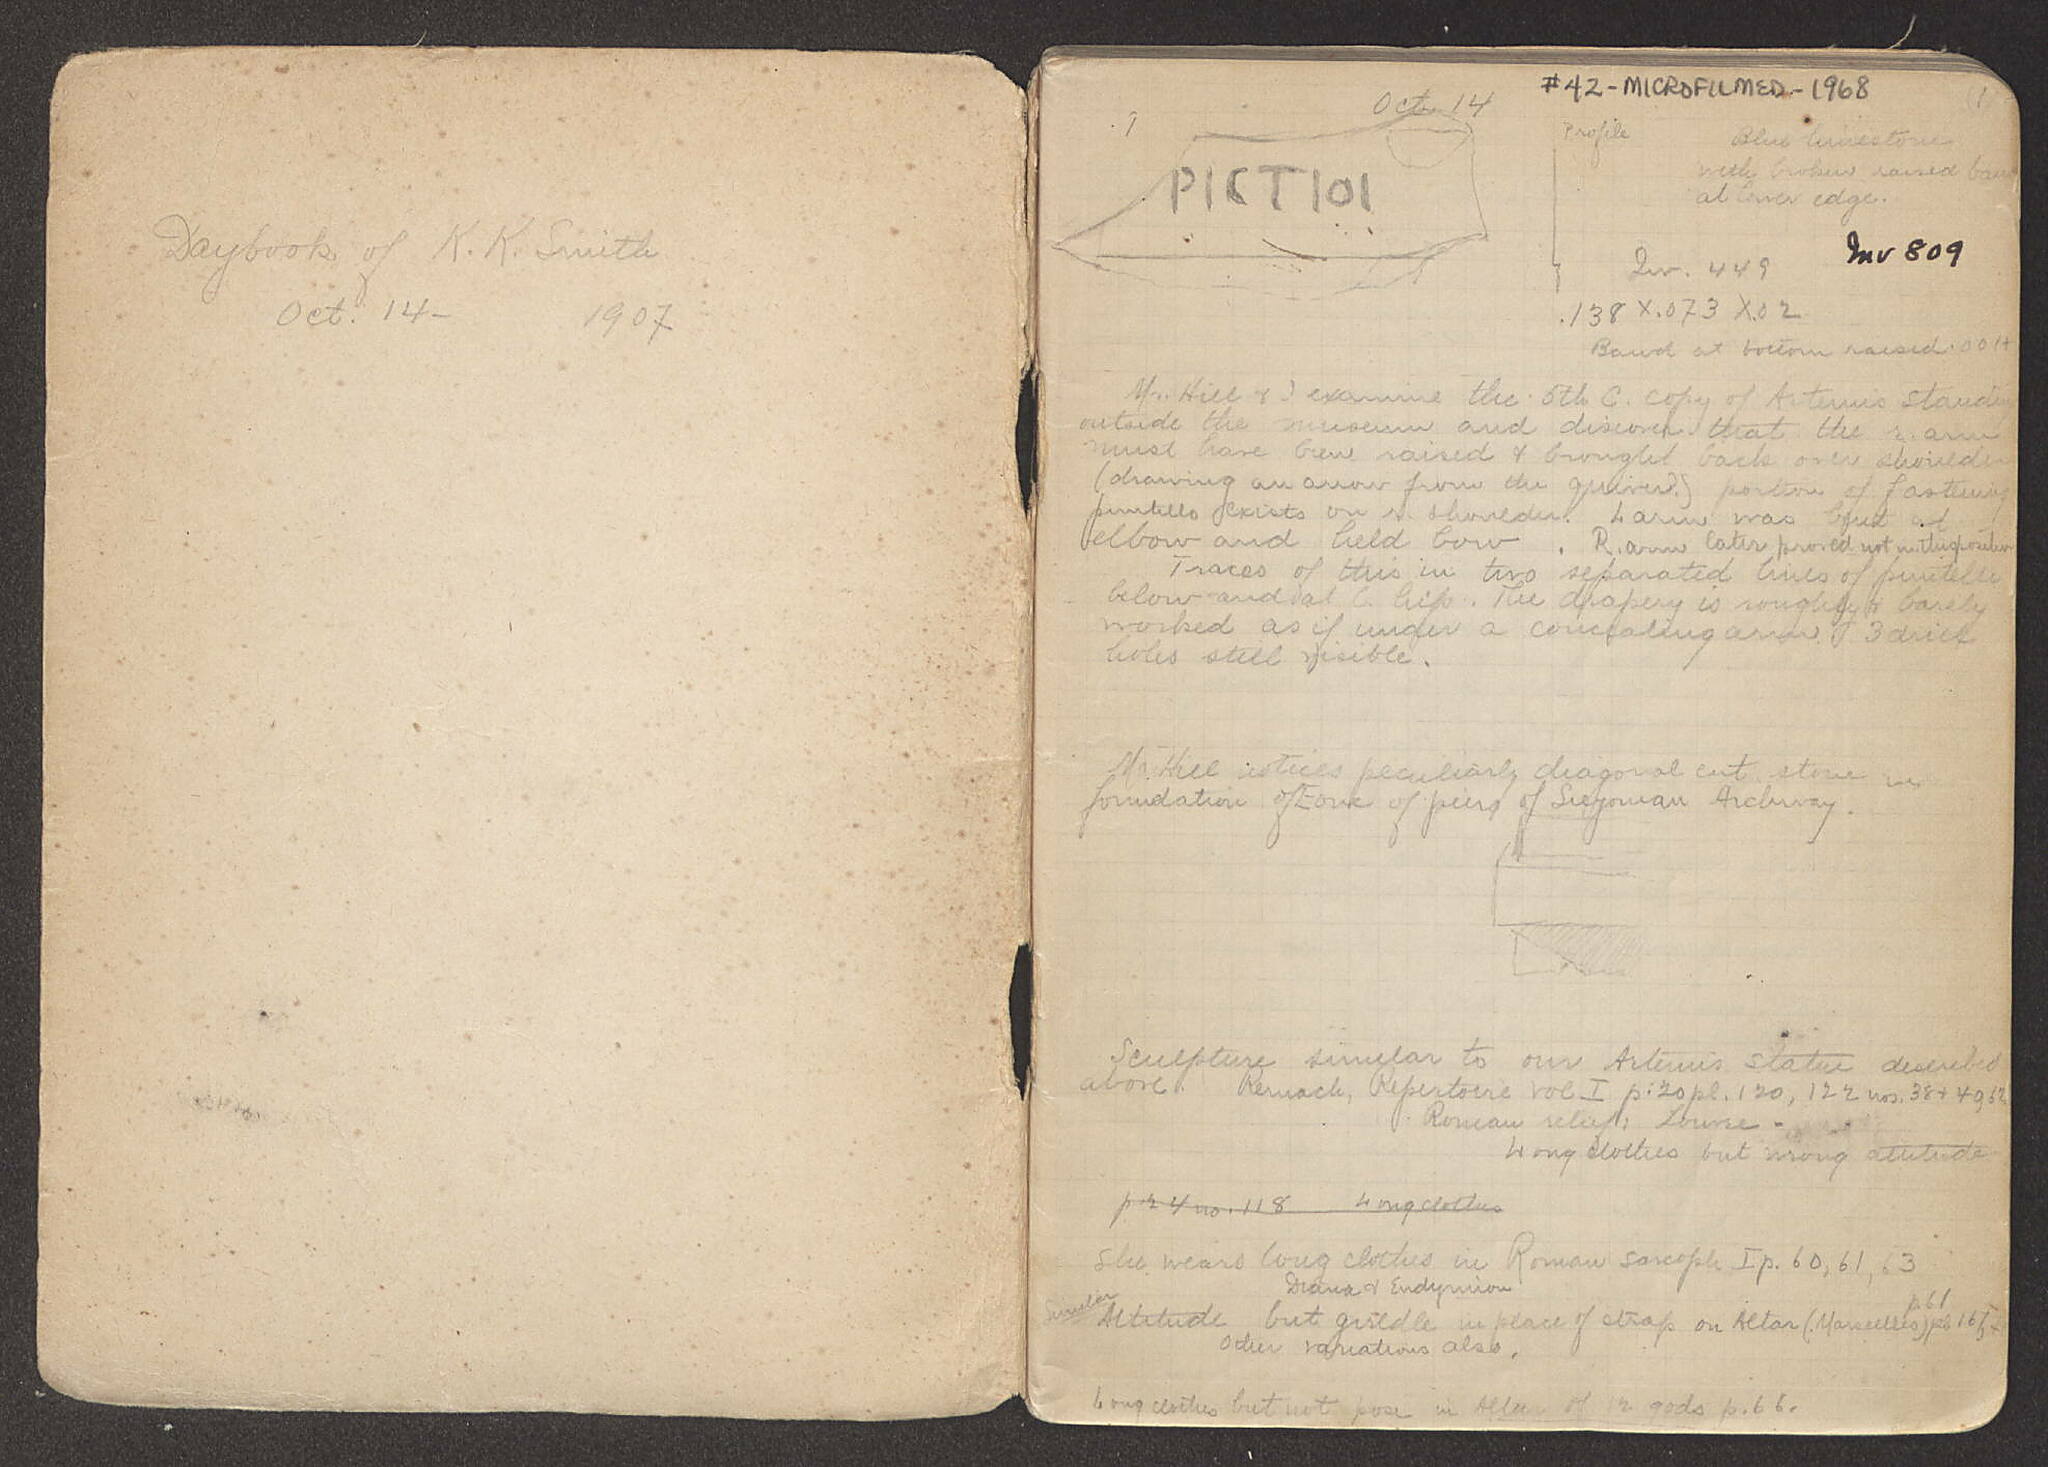 Daybook of K. K. Smith
Oct. 14- 1907
#42-MICROFILMED-1968
Oct. 14
1
(1)
Profile
Blue limestone
with broken raised band
at lower edge.
PICTIOI
Inv. 449
Inv 809
.138 X .073 X .02
Band at bottom raised .001+
Mr. Hill & I examine the 5th C. copy of Artemis standing
outside the museum and discover that the r. arm
must have been raised & brought back over shoulder
(drawing an arrow from the quiver?) portion of fastening
puntello exists on r. shoulder. L arm was bent at
elbow and held bow . R. arm later proved not in this position
Traces of this in two separated lines of puntelli
below and at l. hip. The drapery is roughly & barely
worked as if under a concealing arm & 3 drill
holes still visible.
Mr. Hill notices peculiarly diagonal cut stone in
foundation of E one of piers of Sicyonian Archway.
Sculpture similar to our Artemis statue described
above. Reinach, Repertoire vol I p. 20 pl. 120, 122 nos. 38 + 49, 62
Roman relief, Louvre -
Long clothes but wrong attitude
p. 24 no. 118 Long clothes
She wears long clothes in Roman sarcoph I p. 60, 61, 63
Diana & Endymion
p. 61
Similar Attitude but girdle in place of strap on Altar (Marseilles)
Other variations also.
Long clothes but not pose in Altar of 12 gods p. 66.